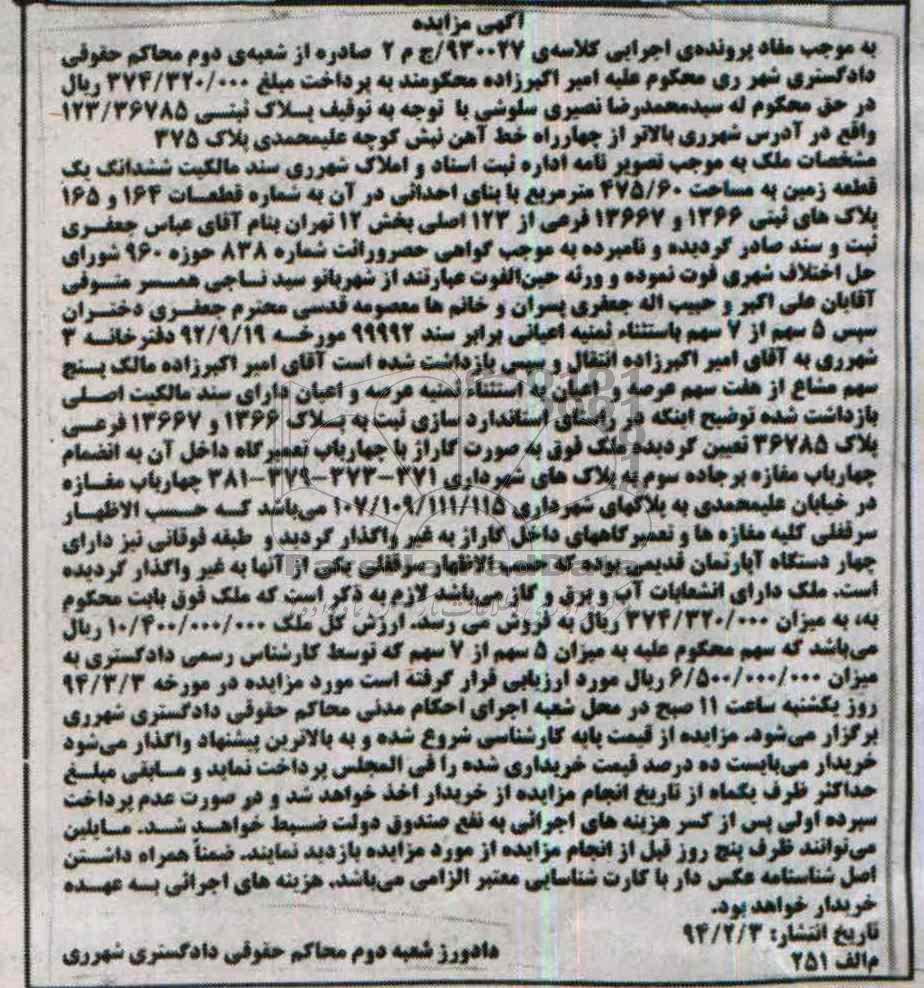 آگهی مزایده
به موجب مفاد پرونده‌ی اجرایی کلاسه‌ی ۹۳۰۰۲۷/ج م ۲ صادره از شعبه‌ی دوم محاکم حقوقی
دادگستری شهر ری محکوم علیه امیر اکبرزاده محکومند به پرداخت مبلغ ۳۷۴/۳۲۰/۰۰۰ ریال
در حق محکوم له سیدمحمدرضا نصیری سلوشی با توجه به توقیف پلاک ثبتی ۱۲۳/۳۶۷۸۵
واقع در آدرس شهرری بالاتر از چهارراه خط آهن نبش کوچه علیمحمدی پلاک ۳۷۵
مشخصات ملک به موجب تصویر نامه اداره ثبت اسناد و املاک شهرری سند مالکیت ششدانگ یک
قطعه زمین به مساحت ۴۷۵/۶۰ مترمربع با بنای احداثی در آن به شماره قطعات ۱۶۴ و ۱۶۵
پلاک های ثبتی ۱۳۶۶ و ۱۳۶۶۷ فرعی از ۱۲۳ اصلی بخش ۱۲ تهران بنام آقای عباس جعفری
ثبت و سند صادر گردیده و نامبرده به موجب گواهی حصروراثت شماره ۸۳۸ حوزه ۹۶۰ شورای
حل اختلاف شهری فوت نموده و ورثه حین‌الفوت عبارتند از شهربانو سید ناجی همسر متوفی
آقایان علی اکبر و حبیب اله جعفری پسران و خانم ها معصومه قدسی محترم جعفری دختران
سپس ۵ سهم از ۷ سهم باستثناء ثمنیه اعیانی برابر سند ۹۹۹۹۲ مورخه ۹۲/۹/۱۹ دفترخانه ۳
شهرری به آقای امیر اکبرزاده انتقال و سپس بازداشت شده است آقای امیر اکبرزاده مالک پنج
سهم مشاع از هفت سهم عرصه و اعیان به استثناء ثمنیه عرصه و اعیان دارای سند مالکیت اصلی
بازداشت شده توضیح اینکه در راستای استاندارد سازی ثبت به پلاک ۱۳۶۶ و ۱۳۶۶۷ فرعی
پلاک ۳۶۷۸۵ تعیین گردیده ملک فوق به صورت گاراژ با چهارباب تعمیرگاه داخل آن به انضمام
چهارباب مغازه برجاده سوم به پلاک های شهرداری ۳۷۱-۳۷۳-۳۷۹-۳۸۱ چهارباب مغازه
در خیابان علیمحمدی به پلاکهای شهرداری ۱۰۷/۱۰۹/۱۱۱/۱۱۵ می‌باشد که حسب الاظهار
سرقفلی کلیه مغازه ها و تعمیرگاههای داخل گاراژ به غیر واگذار گردید و طبقه فوقانی نیز دارای
چهار دستگاه آپارتمان قدیمی بوده که حسب الاظهار سرقفلی یکی از آنها به غیر واگذار گردیده
است. ملک دارای انشعابات آب و برق و گاز می‌باشد لازم به ذکر است که ملک فوق بابت محکوم
به، به میزان ۳۷۴/۳۲۰/۰۰۰ ریال به فروش می رسد. ارزش کل ملک ۱۰/۴۰۰/۰۰۰/۰۰۰ ریال
می‌باشد که سهم محکوم علیه به میزان ۵ سهم از ۷ سهم که توسط کارشناس رسمی دادگستری به
میزان ۶/۵۰۰/۰۰۰/۰۰۰ ریال مورد ارزیابی قرار گرفته است مورد مزایده در مورخه ۹۴/۳/۳
روز یکشنبه ساعت ۱۱ صبح در محل شعبه اجرای احکام مدنی محاکم حقوقی دادگستری شهرری
برگزار می‌شود. مزایده از قیمت پایه کارشناسی شروع شده و به بالاترین پیشنهاد واگذار می‌شود
خریدار می‌بایست ده درصد قیمت خریداری شده را فی المجلس پرداخت نماید و مابقی مبلغ
حداکثر ظرف یکماه از تاریخ انجام مزایده از خریدار اخذ خواهد شد و در صورت عدم پرداخت
سپرده اولی پس از کسر هزینه های اجرائی به نفع صندوق دولت ضبط خواهد شد. مایلین
می‌توانند ظرف پنج روز قبل از انجام مزایده از مورد مزایده بازدید نمایند. ضمناً همراه داشتن
اصل شناسنامه عکس دار با کارت شناسایی معتبر الزامی می‌باشد، هزینه های اجرائی به عهده
خریدار خواهد بود.
تاریخ انتشار: ۹۴/۲/۳
م‌الف ۲۵۱ دادورز شعبه دوم محاکم حقوقی دادگستری شهرری